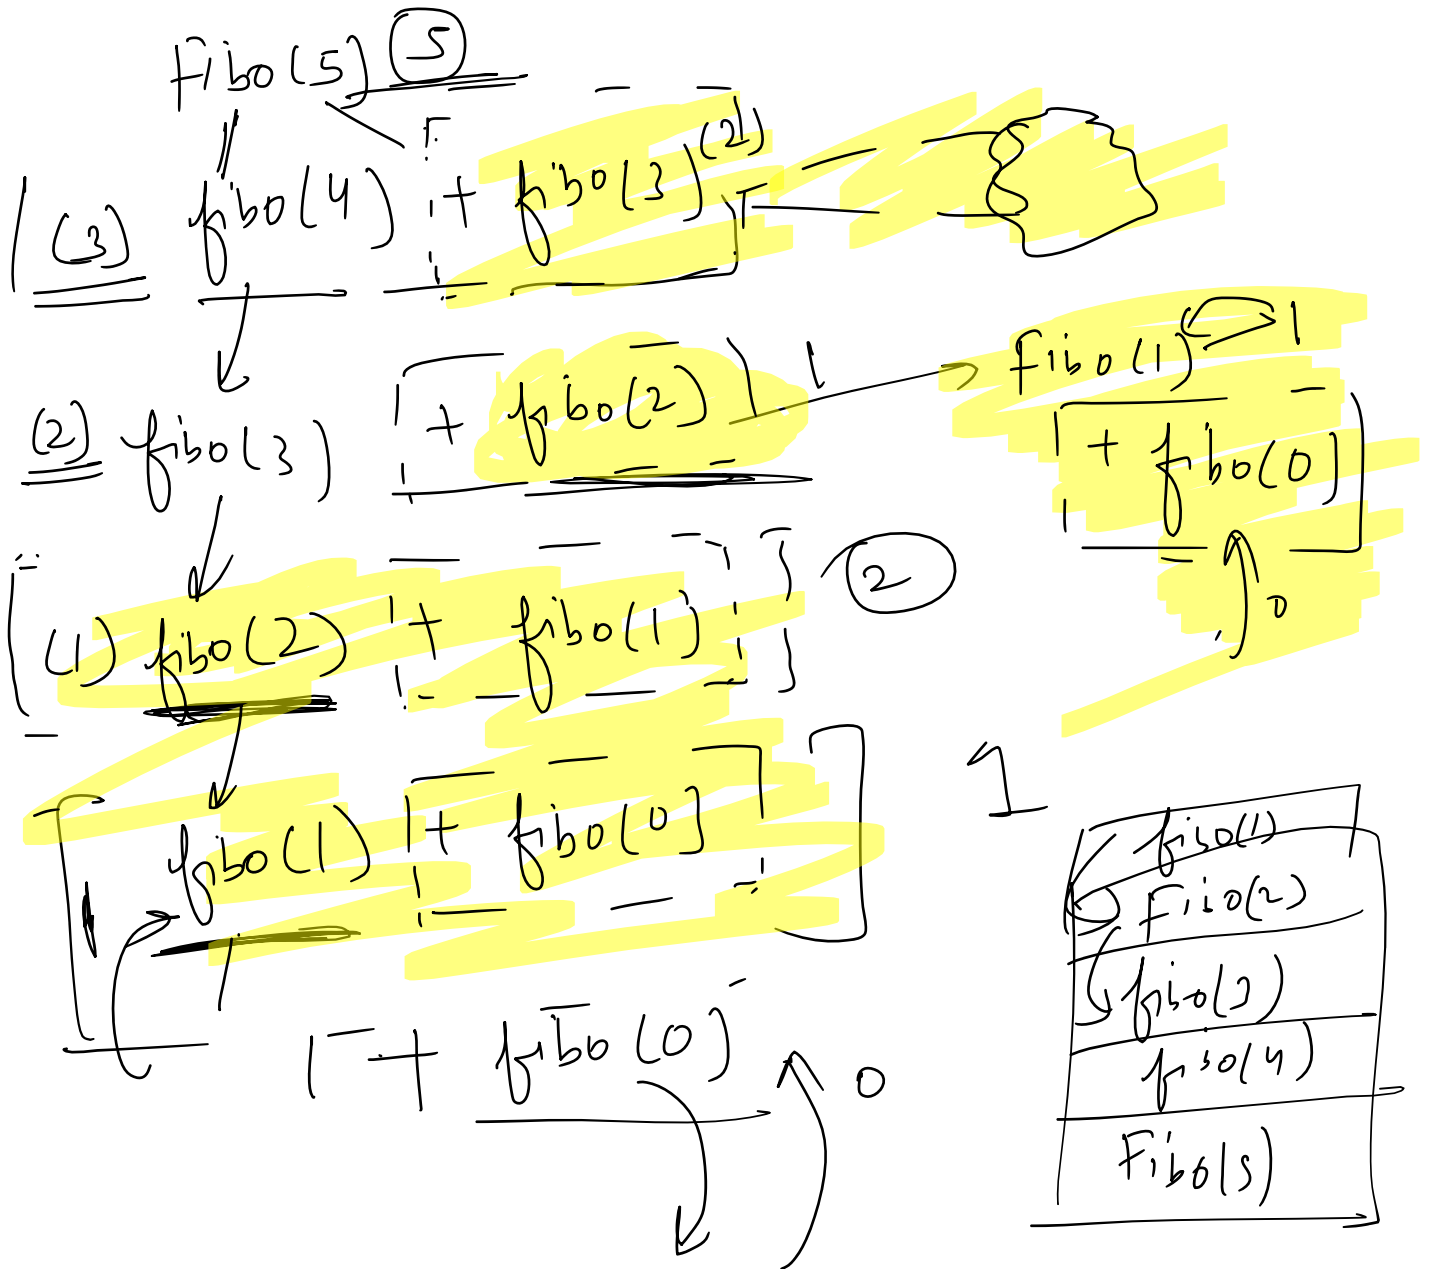 Fibo(5) 5
(3) fibo(4) + fibo(3) (2)
(2) fibo(3) + fibo(2) 1
fibo(1) 1
+ fibo(0)
0
(1) fibo(2) + fibo(1) 2
1 fibo(1) + fibo(0)
1
+ fibo(0) 0
fibo(1)
Fibo(2)
fibo(3)
fibo(4)
Fibo(5)